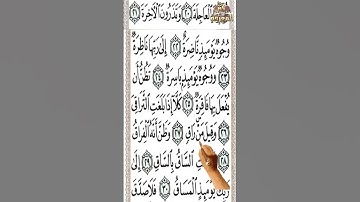 الْعَاجِلَةَ ۝٢٠ وَتَذَرُونَ الْآخِرَةَ ۝٢١
وُجُوهٌ يَوْمَئِذٍ نَاضِرَةٌ ۝٢٢ إِلَى رَبِّهَا نَاظِرَةٌ
۝٢٣ وَوُجُوهٌ يَوْمَئِذٍ بَاسِرَةٌ ۝٢٤ تَظُنُّ أَنْ
يُفْعَلَ بِهَا فَاقِرَةٌ ۝٢٥ كَلَّا إِذَا بَلَغَتِ التَّرَاقِيَ
۝٢٦ وَقِيلَ مَنْ رَاقٍ ۝٢٧ وَظَنَّ أَنَّهُ الْفِرَاقُ
۝٢٨ السَّاقُ بِالسَّاقِ ۝٢٩ إِلَى
رَبِّكَ يَوْمَئِذٍ الْمَسَاقُ ۝٣٠ فَلَا صَدَّقَ